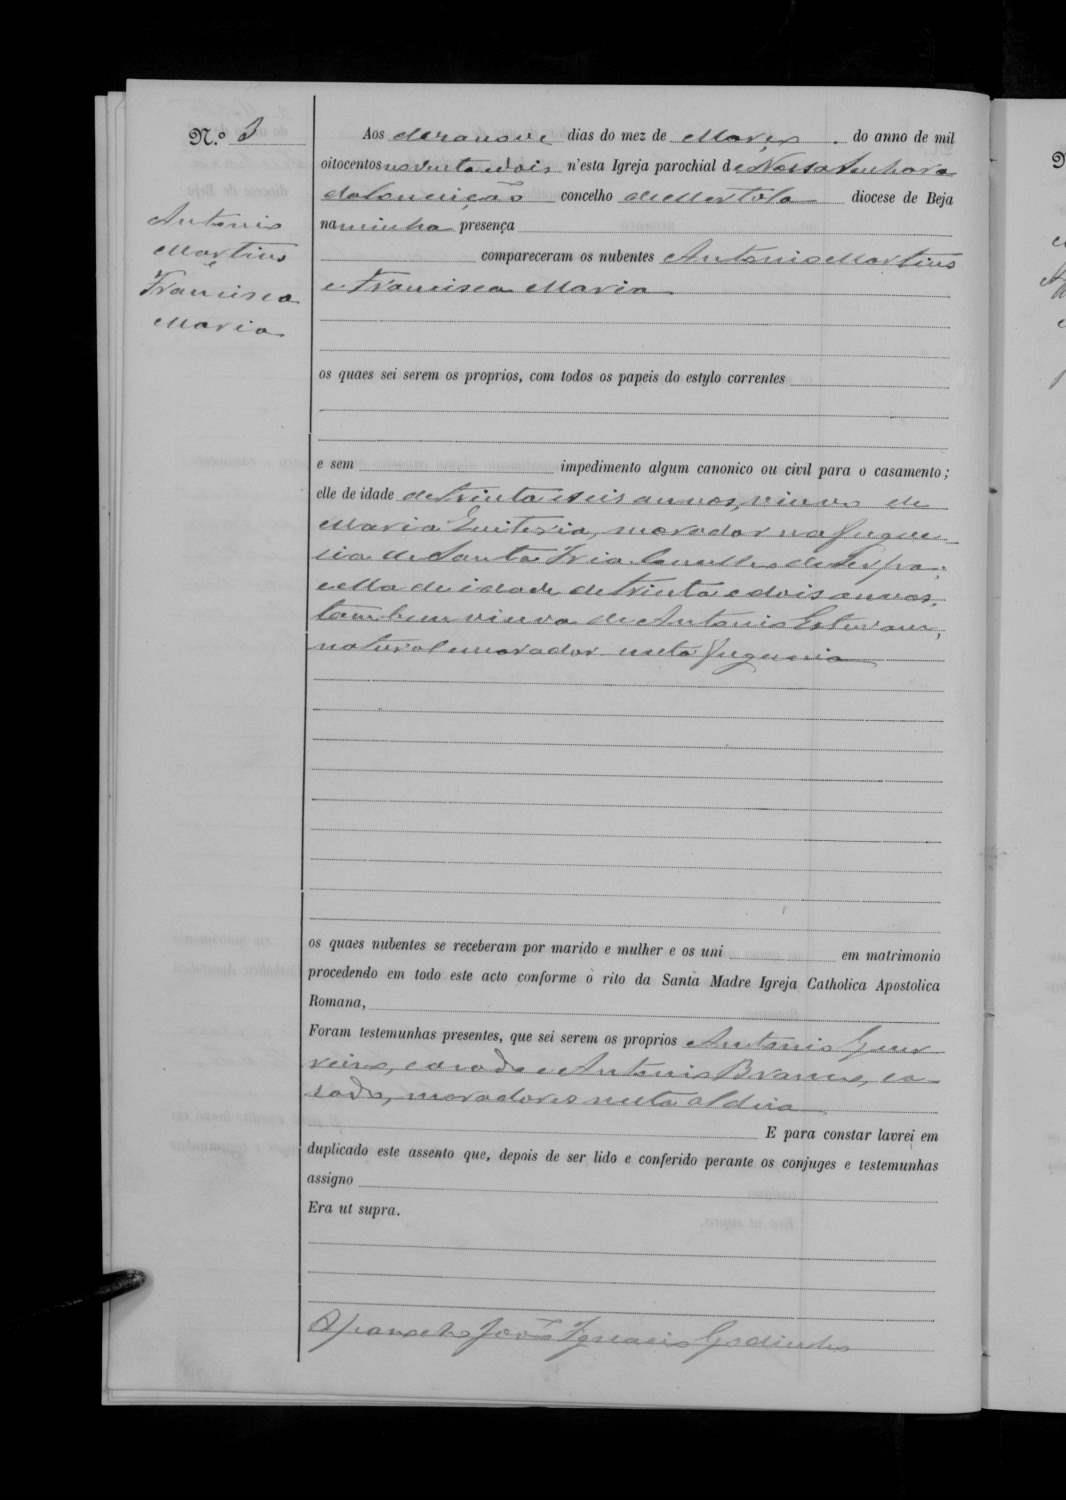 N.º 3
Antonio
Martins
e
Francisca
Maria
Aos desanove dias do mez de Março do anno de mil
oitocentos noventa e dois n'esta Igreja parochial de Nossa Senhora
da Conceição concelho de Mertola diocese de Beja
na minha presença
compareceram os nubentes Antonio Martins
e Francisca Maria
os quaes sei serem os proprios, com todos os papeis do estylo correntes
e sem impedimento algum canonico ou civil para o casamento;
elle de idade de trinta e seis annos, viuvo de
Maria Quiteria, morador na fregue-
sia de Santa Iria Concelho de Serpa;
e ella de idade de trinta e dois annos,
tambem viuva de Antonio Estevam,
natural e morador nesta freguesia
os quaes nubentes se receberam por marido e mulher e os uni em matrimonio
procedendo em todo este acto conforme o rito da Santa Madre Igreja Catholica Apostolica
Romana,
Foram testemunhas presentes, que sei serem os proprios Antonio Guer
reiro, casado e Antonio Branco, ca-
sado, moradores nesta aldeia
E para constar lavrei em
duplicado este assento que, depois de ser lido e conferido perante os conjuges e testemunhas
assigno
Era ut supra.
O Parocho José Ignacio Godinho